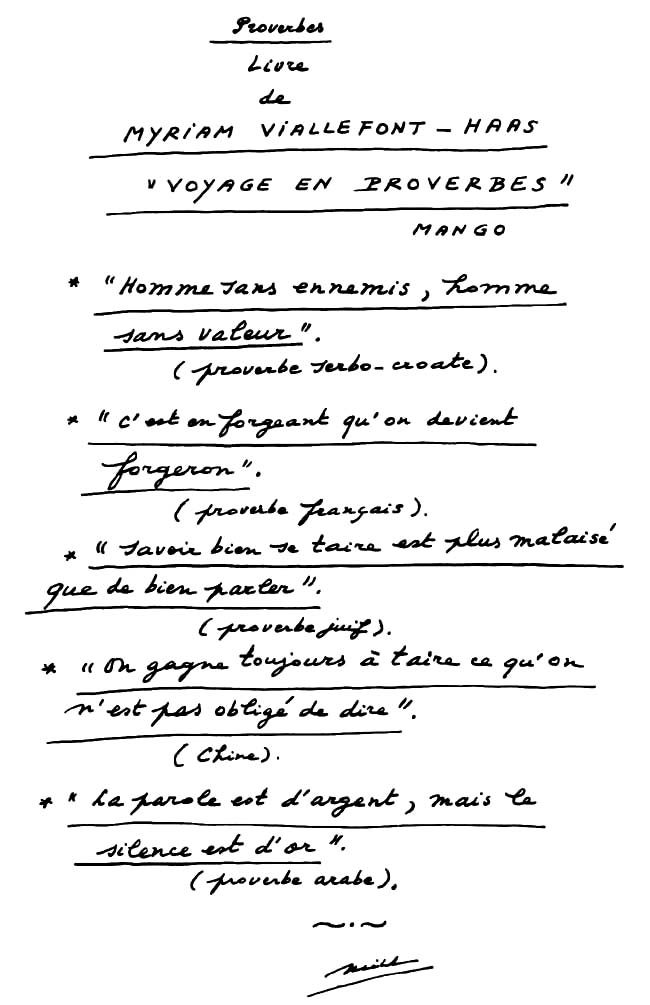 Proverbes
Livre
de
MYRIAM VIALLEFONT - HAAS
"VOYAGE EN PROVERBES"
MANGO
* "Homme sans ennemis, homme
sans valeur".
(proverbe serbo-croate).
* "C'est en forgeant qu'on devient
forgeron".
(proverbe français).
* "Savoir bien se taire est plus malaisé
que de bien parler".
(proverbe juif).
* "On gagne toujours à taire ce qu'on
n'est pas obligé de dire".
(Chine).
* "La parole est d'argent, mais le
silence est d'or".
(proverbe arabe).
~.~